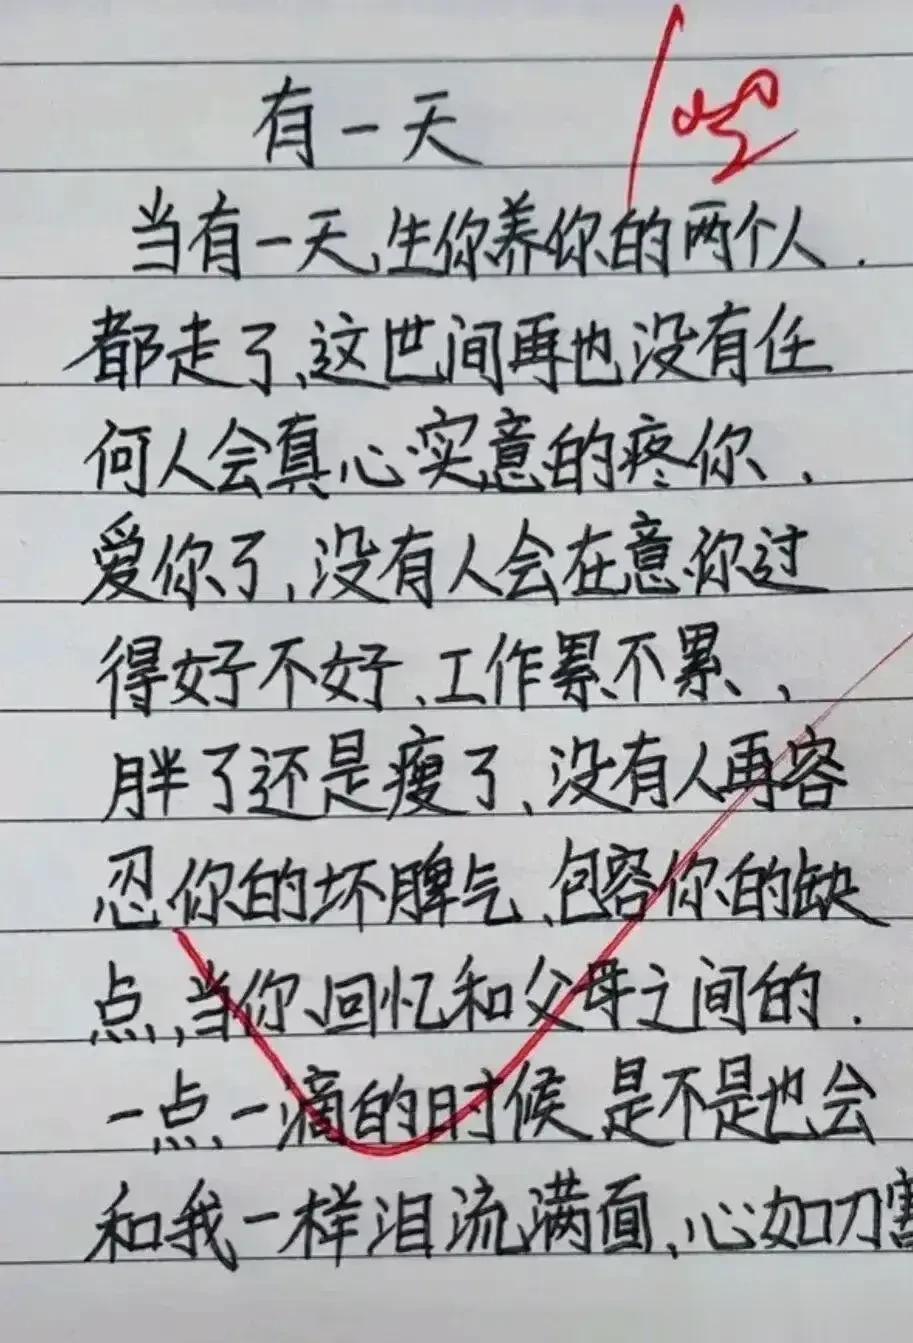 有一天
当有一天、生你养你的两个人.
都走了、这世间再也没有任
何人会真心实意的疼你、
爱你了、没有人会在意你过
得好不好、工作累不累、
胖了还是瘦了、没有人再容
忍你的坏脾气、包容你的缺
点、当你回忆和父母之间的.
一点一滴的时候 是不是也会
和我一样泪流满面、心如刀割